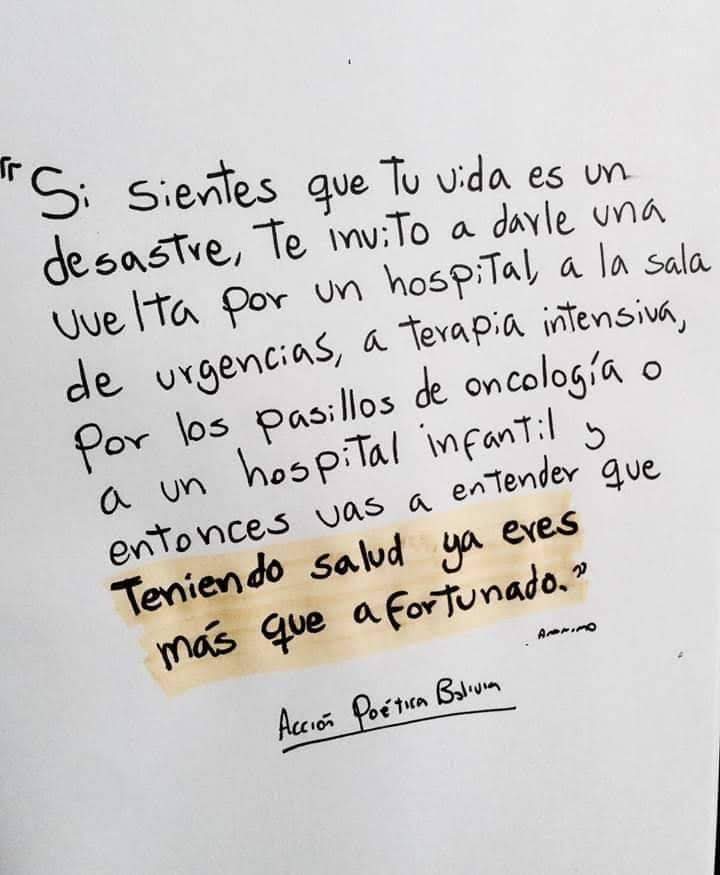 "Si sientes que tu vida es un
desastre, te invito a darle una
vuelta por un hospital, a la sala
de urgencias, a terapia intensiva,
por los pasillos de oncología o
a un hospital infantil y
entonces vas a entender que
teniendo salud ya eres
más que afortunado."
. Anonimo
Acción Poética Bolivia